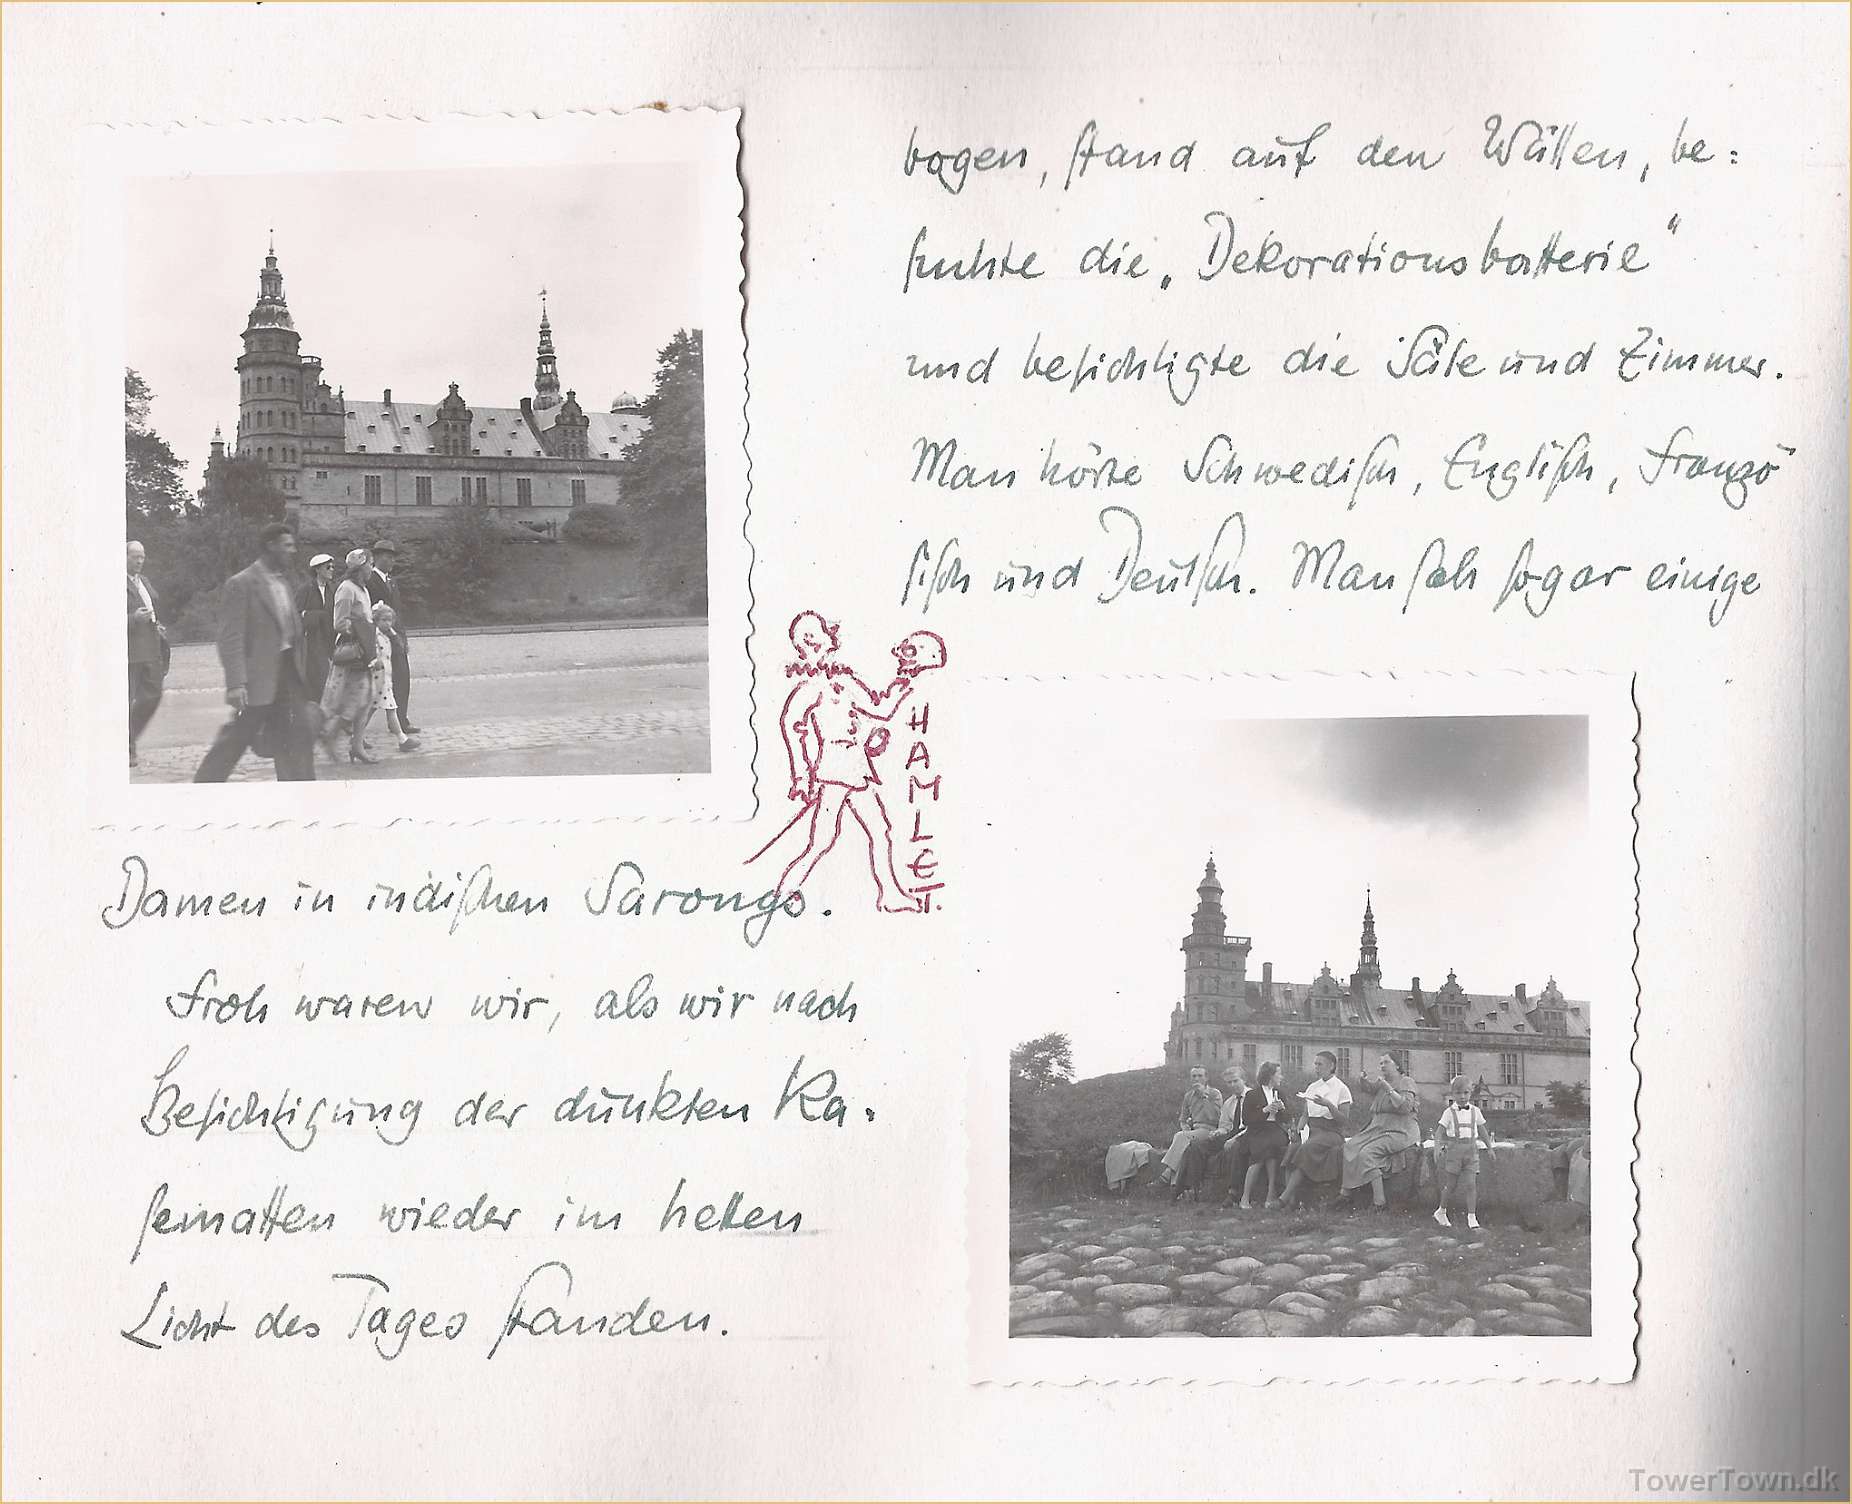 bogen, stand auf den Wällen, be=
suchte die „Dekorationsbatterie“
und besichtigte die Säle und Zimmer.
Man hörte Schwedisch, Englisch, Franzö
sisch und Deutsch. Man sah sogar einige
HAMLET.
Damen in indischen Sarongs.
Froh waren wir, als wir nach
Besichtigung der dunklen Ka=
sematten wieder im hellen
Licht des Tages standen.
TowerTown.dk